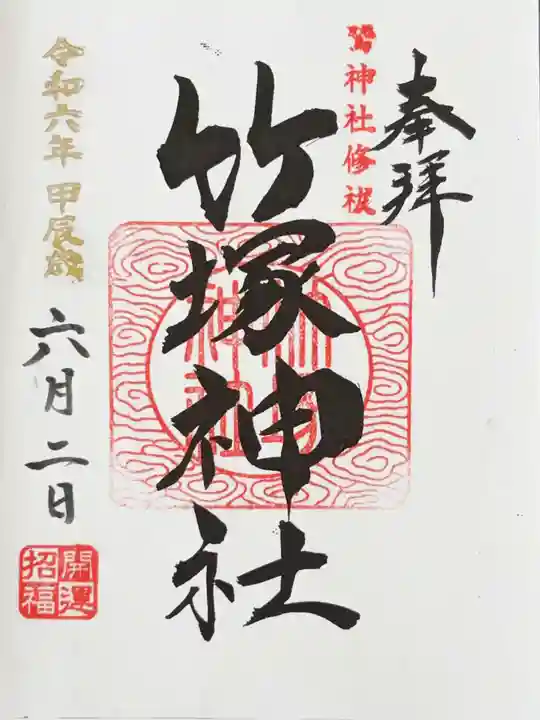 奉拝
神社修祓
竹塚神社
竹塚神社
令和六年 甲辰歳
六月二日
開運招福